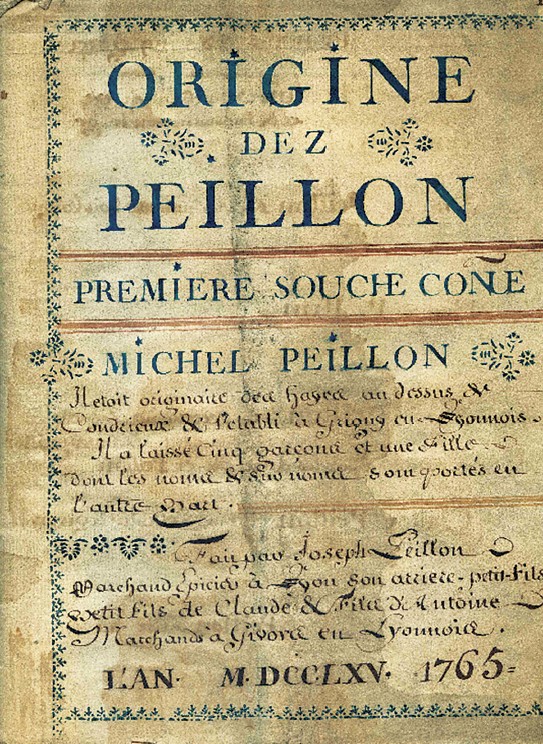 ORIGINE
DEZ
PEILLON
PREMIERE SOUCHE CONUE
MICHEL PEILLON
Il etoit originaire des hayes au dessus de
Condrieux & s'etabli à Grigny en Lyonnois.
Il a laissé Cinq garçons et une fille
dont les noms & surnoms sont portés en
l'autre Part.
Fait par Joseph Peillon
Marchand Epicier à Lyon son arriere-petit-fils
petit fils de Claude & fils de Antoine
Marchands à Givors en Lyonnois.
L'AN. M.DCCLXV. 1765=